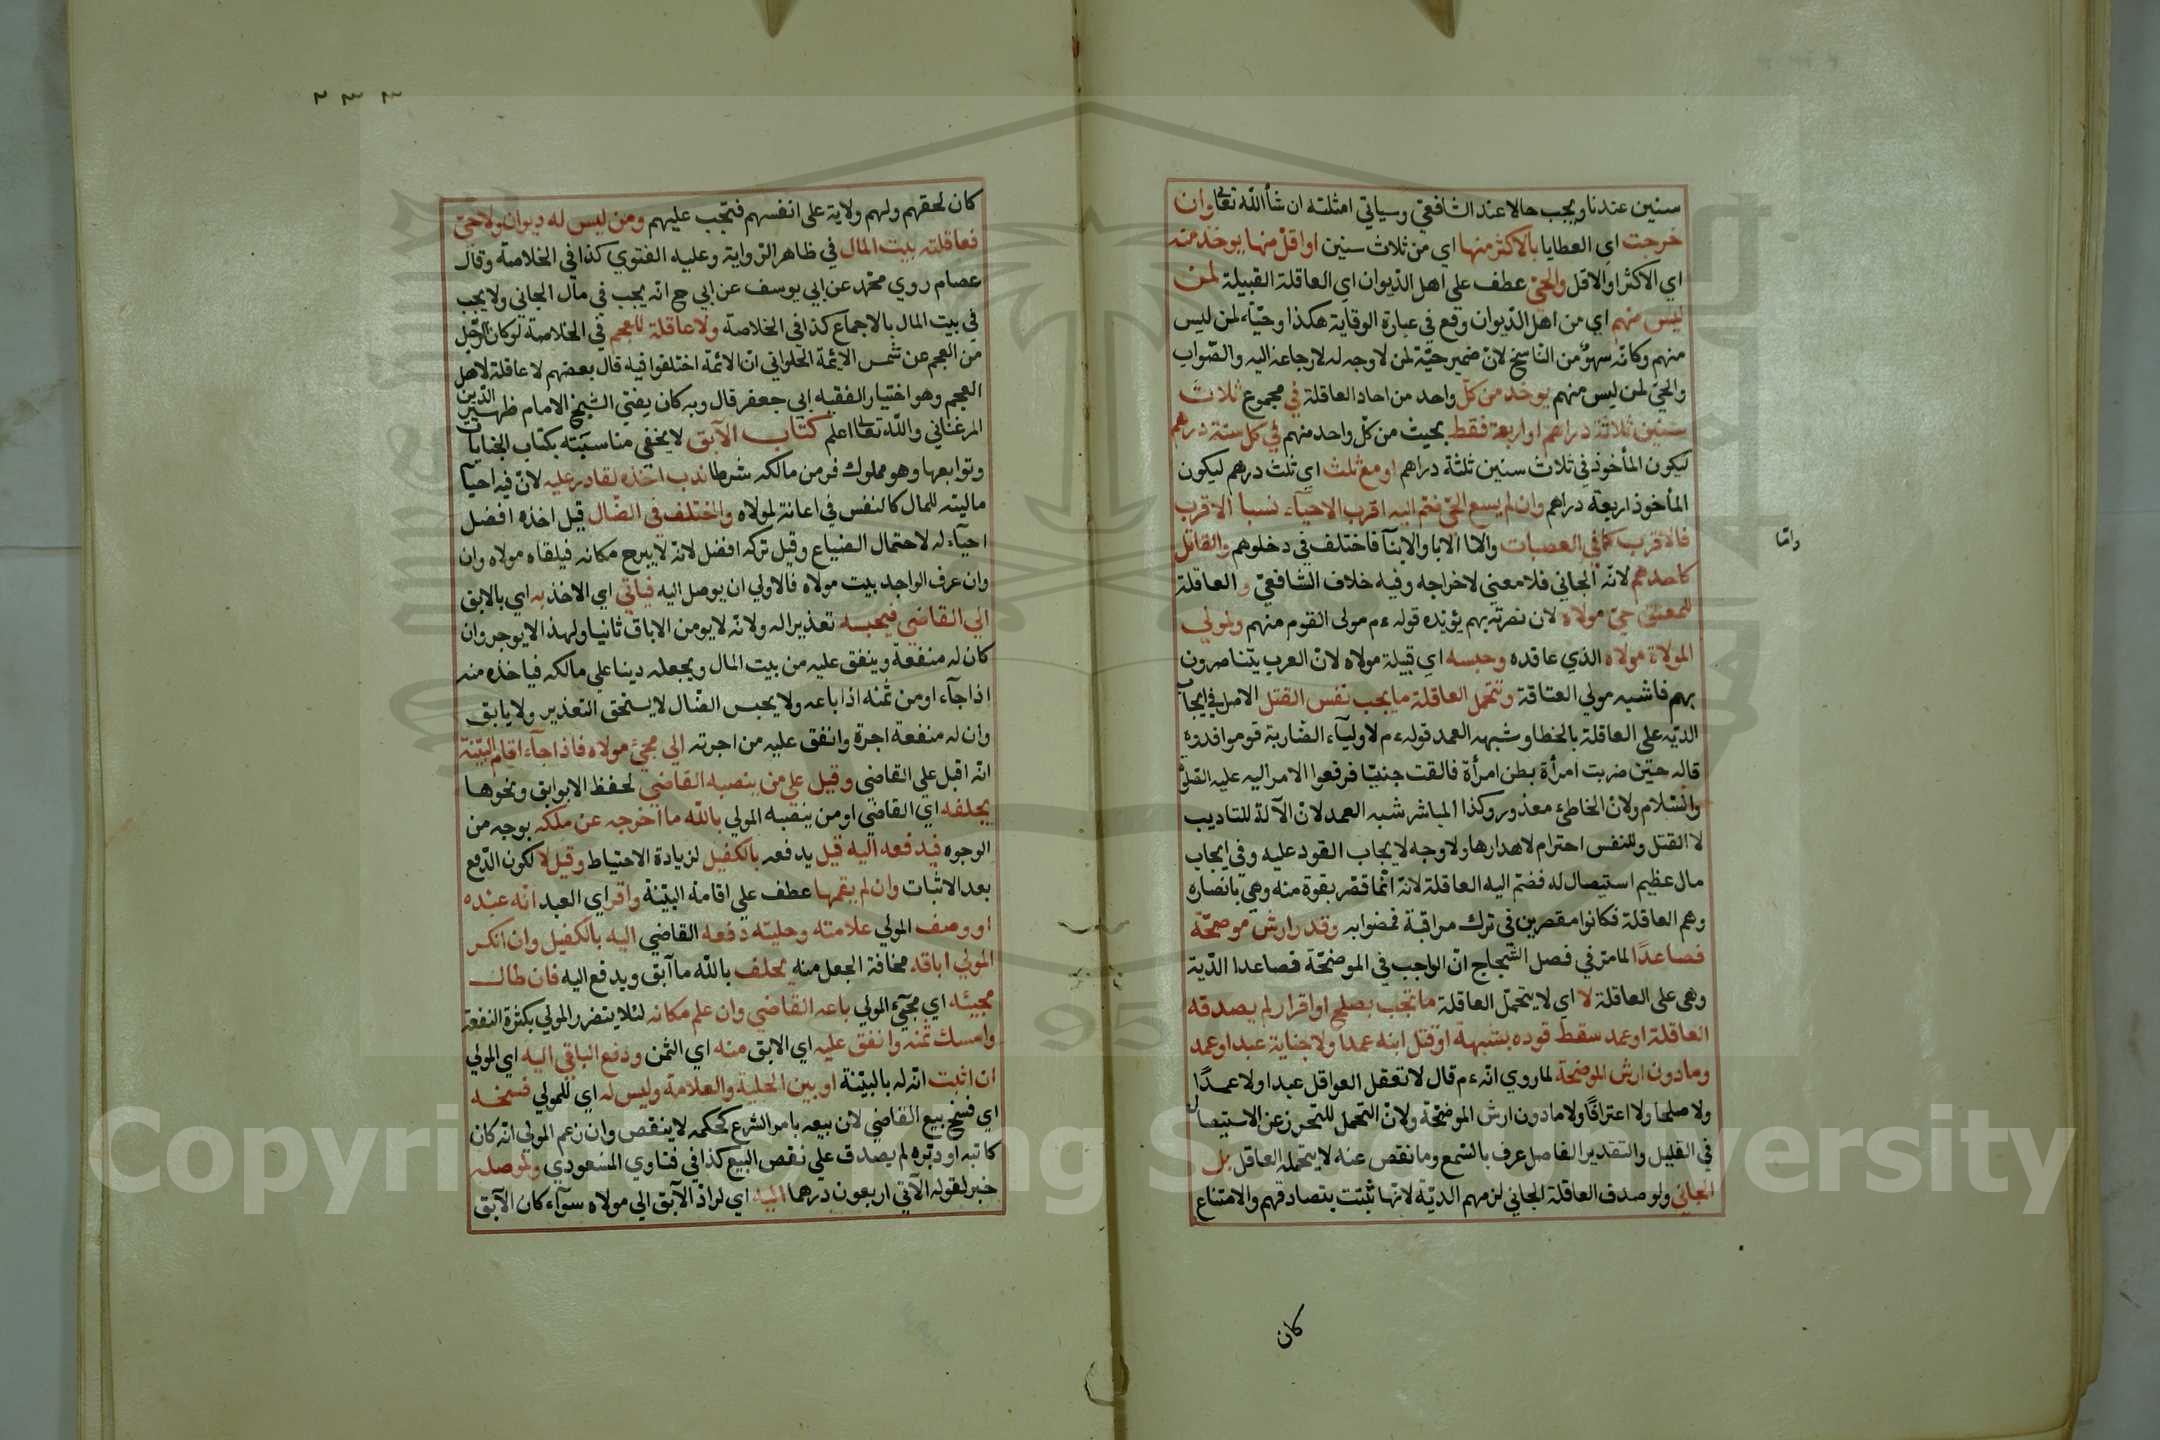 سنين عندنا ويجب حالا عند الشافعيّ وسياتي امثلته ان شأ اللّه تعالى وان
خرجت اي العطايا بالاكثر منها اي من ثلاث سنين او اقلّ منها يوخذ منه
اي الاكثر او الاقل والحيّ عطف على اهل الدّيوان اي العاقلة القبيلة لمن
ليس منهم اي من اهل الدّيوان وقع في عبارة الوقاية هكذا وحيّاء لمن ليس
منهم وكانّه سهوٌ من النّاسخ لانّ ضمير حيّه لمن لا وجه له لارجاعه اليه والصّواب
والحيّ لمن ليس منهم يوخذ من كلّ واحد من احاد العاقلة في مجموع ثلاث
سنين ثلاثة دراهم او اربعة فقط بحيث من كلّ واحد منهم في كل سنة درهم
ليكون المأخوذ في ثلاث سنين ثلثة دراهم او مع ثلث اي ثلث درهم ليكون
المأخوذ اربعة دراهم وان لم يسع الحيّ ضمّ اليه اقرب الاحيّاء نسبا الاقرب
فالاقرب كما في العصبات والآنا الابا والابنآ فاختلف في دخلوهم والقاتل
وامّا
كاحدهم لانّه الجاني فلا معنى لاخراجه وفيه خلاف الشافعيّ و العاقلة
للمعتق حيّ مولاه لان نصرته بهم يؤيّده قوله ءم مولى القوم منهم ولمولي
المولاة مولاه الذي عاقده وحيسه اي قبيلة مولاه لانّ العرب يتناصرون
بهم فاشبه مولي العتاقة وتتحمل العاقلة ما يجب نفس القتل الاصل في ايجاب
الديّه على العاقلة بالخطا وشبهه العمد قوله ءم لاوليآء الضاربة قوموا فدوه
قاله حين ضربت امرأة بطن امرأة فالقت جنيّا فرفعوا الامر اليه عليه الصلوة
والسّلام ولانّ الخاطئ معذور وكذا المباشر شبه العمد لانّ الآلة للتاديب
لا القتل وللنفس احترام لاهدارها ولا وجه لايجاب القود عليه وفي ايجاب
مال عظيم استيصال له فضمّ اليه العاقلة لانّه انّما قصّر بقوة منه وهي بانصاره
وهم العاقلة فكانوا مقصرين في ترك مراقبة فضوا به وقدر ارش موضحّة
فصاعدًا لما مرّ في فصل الشّجاج انّ الواجب في الموضحّة فصاعدا الدّية
وهي على العاقلة لا اي لا يتحمّل العاقلة ما تجب بصلح او اقرار لم يصدقه
العاقلة او عمد سقط قوده بشبهة او قتل ابنه عمدا ولا بجناية عبد او عمد
وما دون ارش الموضحة لما روي انّه ءم قال لا تعقل العواقل عبدا ولا عمدًا
ولا صلحا ولا اعترافًا ولا ما دون ارش الموضحّة ولانّ التحمل للتّحرز عن الاستيصال
في القليل والتقدير الفاصل عرف بالسّمع وما نقص عنه لا يتحمله العاقل بل
الجاني ولو صدف العاقلة الجاني لزمهم الديّة لانّها ثبّتت بتصادقهم والامتناع
كان
٢٣٣
كان لحقهم ولهم ولاية على انفسهم فتجب عليهم ومن ليس له ديوان ولا حيّ
فعاقلته بيت المال في ظاهر الرّواية وعليه الفتوي كذا في الخلاصة وقال
عصام روي محمّد عن ابي يوسف عن ابي ح انّه يجب في مال الجاني ولا يجب
في بيت المال بالاجماع كذا في الخلاصة ولا عاقلة للعجم في الخلاصة لو كان الرّجل
من العجم عن شمس الايمّة الحلواني انّ الائمّة اختلفوا فيه قال بعضهم لا عاقلة لاهل
العجم وهو اختيار الفقيه ابي جعفر قال وبه كان يفتي الشيخ الامام ظهير الدّين
المرغناني واللّه تعالى اعلم كتاب الآبق لا يخفي مناسبَته بكتاب الجنايات
وتوابعها وهو مملوك فرّ من مالكه شرطا ندب اخذه لقادر عليه لانّ فيه احيآ
ماليته للمال كالنفس في اعانة لمولاه واختلف في الضّال قيل اخذه افضل
احيآء له لاحتمال الضياع وقيل تركه افضل لانّه لا يبرح مكانه فيلقاه مولاه وان
وان عرف الواجد بيت مولاه فالاولي ان يوصل اليه فياتي اي الاخذ به اي بالابق
الي القاضي فيحبسه تعذيرا له ولانّه لا يومن الاباق ثانيا ولهذا لا يوجر وان
كان له منفعة وينفق عليه من بيت المال ويجعله دينا علي مالكه فياخذه منه
اذا جآء او من ثمنه اذا باعه ولا يحبس الضّال لا يستحق التعذير ولا يابق
وان له منفعة اجرة وانفق عليه من اجرته الي مجئ مولاه فاذا جآء اقام البيّنة
انّه اقبل علي القاضي وقيل علي من ينصبه القاضي لحفظ الابوابق ونحوها
يحلفه اي القاضي او من ينصبه المولي باللّه ما اخرجه عن ملكه بوجه من
الوجوه فيدفعه اليه قيل يدفعه بالكفيل لزيادة الاحتياط وقيل لا لكون الدّفع
بعد الاثبات وان لم يقمها عطف علي اقامة البيّنة واقر اي العبد انّه عبده
او وصف المولي علامته وحليته دفعه القاضي اليه بالكفيل وان انكر
المولي اباقه مخافة الجعل منه يحلف باللّه ما آبق ويدفع اليه فان طال
مجيئه اي مجيّء المولي باعه القاضي وان علم مكانه لئلا يتضرر المولي بكثرة النفقة
وامسك ثمنه وانفق عليه اي الابق منه اي الثمن ودفع الباقي اليه اي المولي
ان اثبت انّه له بالبيّنة او بين الحلية والعلامة وليس له اي للمولي فسخه
اي فسخ بيع القاضي لان بيعه بامر الشرع كحكمه لا ينقص وان زعم المولي انّه كان
كاتبه او دبّره لم يصدق علي نقص البيع كذا في فتاوي المسعودي ولموصله
خبر لقوله الآتي اربعون درهما اليه اي لرادّ الآبق الي مولاه سوآء كان الآبق
Copyright © King Saud University